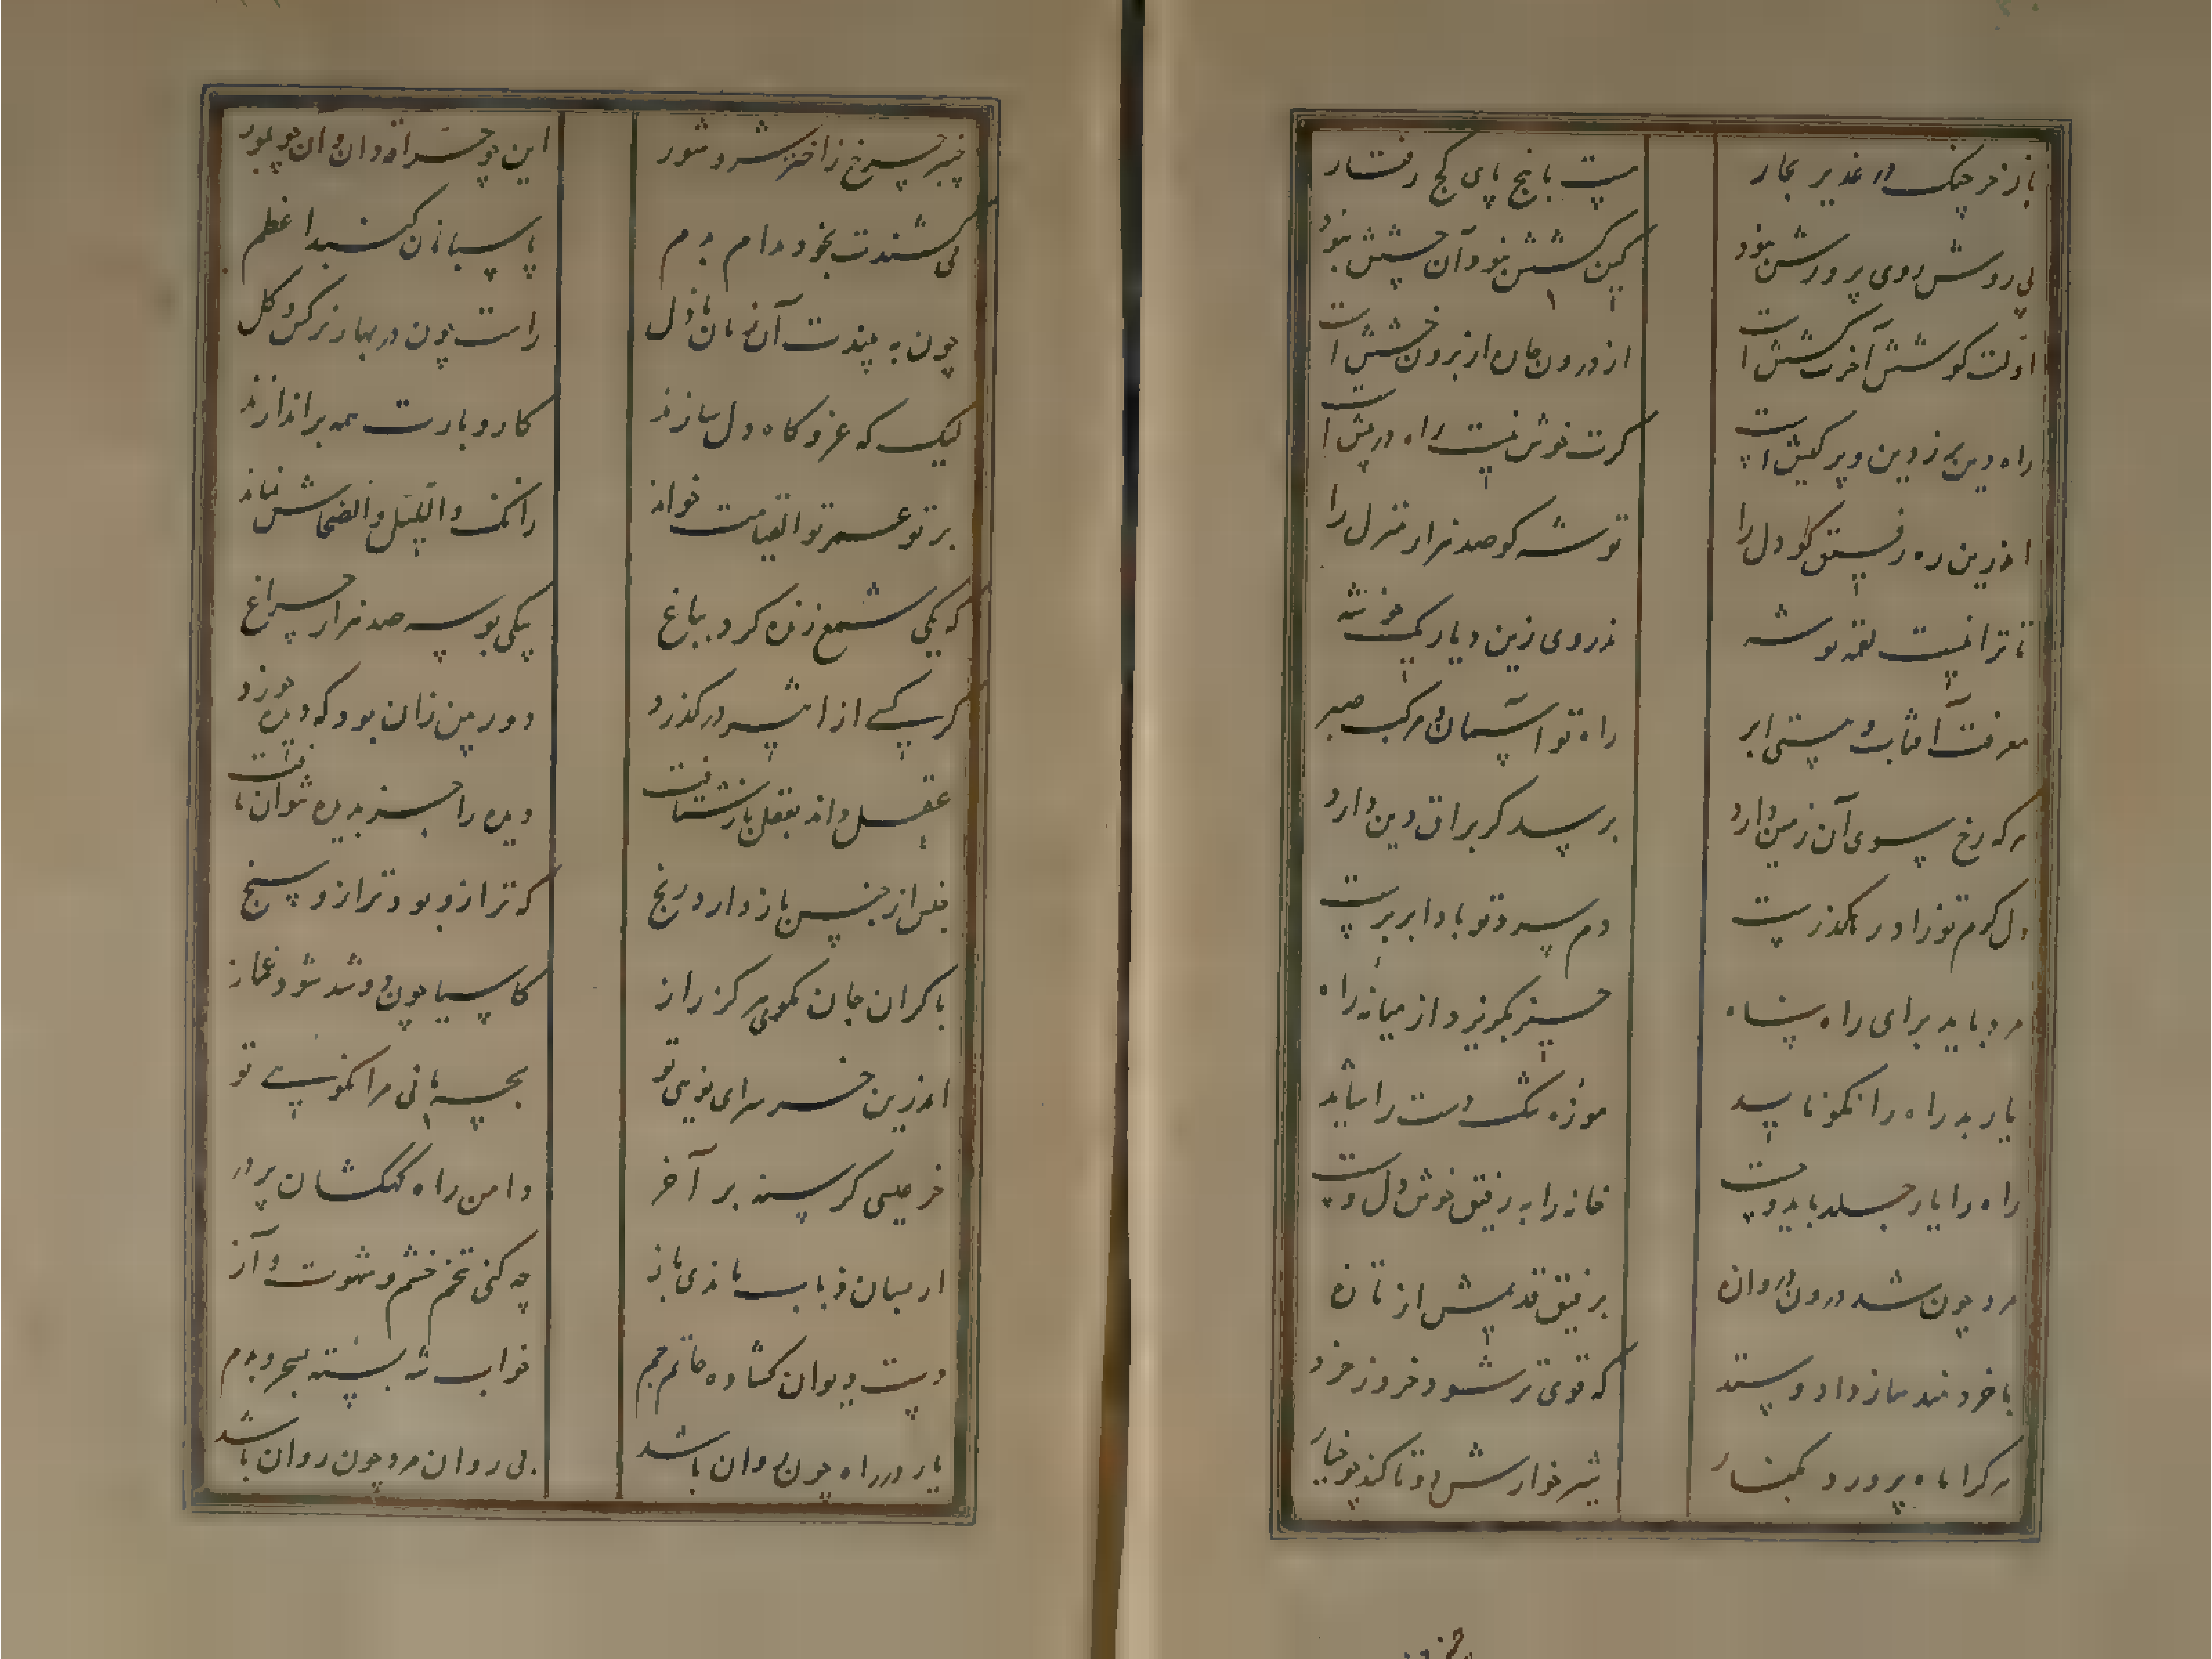 باز خرچنک در غدیر بحار
هست با پنج پای کج رفتار
بی روش روی پرورش نبود
کین کشش نبود آن چشش نبود
اولت کوشش آخرت کشش است
از درون جان از برون خشش است
راه دین بر ز دین و پر کیش است
کرت خوش نیست راه در پیش است
اندرین ره رفیق کو دل را
توشه کو صد هزار منزل را
تا ترا نیست لقمه توشه
نروی زین دیار یک خوشه
معرفت آفتاب و هستی ابر
راه تو آسمان و مرکب صبر
هر که رخ سوی آن زمین دارد
برسد کر براق دین دارد
دل کرم تو زاد رهکذرست
دم سرد تو باد ابر برست
مرد باید برای راه پناه
حیز بکریزد از میانه راه
یار بد راه را نکو ناید
موزه تنک دست را شاید
راه را یار جلد باید و چست
خانه را به رفیق خوش دل و سست
مرد چون شد درون دروازه
بر رفیق قدیمش از تازه
با خردمند ساز داد و ستد
که قوی تر شود خرد ز خرد
هر کرا ماه پرورد بکنار
شیر خوارش دو تا کند چو خیار
خیبر چرخ ز اختر شر و شور
این چو چراه دان و آن چو بلور
می کشندت بخود مدام بدم
پاسبانان کنبد اعظم
چون به بیندت آن زمان نازل
راست چون در بهار نرکس و کل
لیک که عز و کاه دل سازند
کار و بارت همه براندازند
بر تو عمر تو القیامت خواند
زانک واللیل والضحاش نماند
که یکی شمع زنده کرد بباغ
بیکی بوسه صد هزار چراغ
کر کسی از اثیر در کذرد
دوربین زان بود که دیده خورد
عقل داند بعقل باز شتافت
دیده را جز بدیده نتوان یافت
جنس از جنس باز دارد رنج
که ترازو بود ترازو سنج
با کران جان مکوی هرکز راز
کاسیا چون دو شد شود غماز
اندرین خر سرای نوبی تو
بچه مانی مرا نکویی تو
خر عیسی کرسنه بر آخر
دامن راه کهکشان پر در
ار میان ذباب ماندی باز
چه کنی تخم خشم و شهوت و آز
دست دیوان کشاده خاتم جم
خواب شه بسته سحر و بدم
یار در راه چون روان باشد
بی روان مرد چون روان باشد